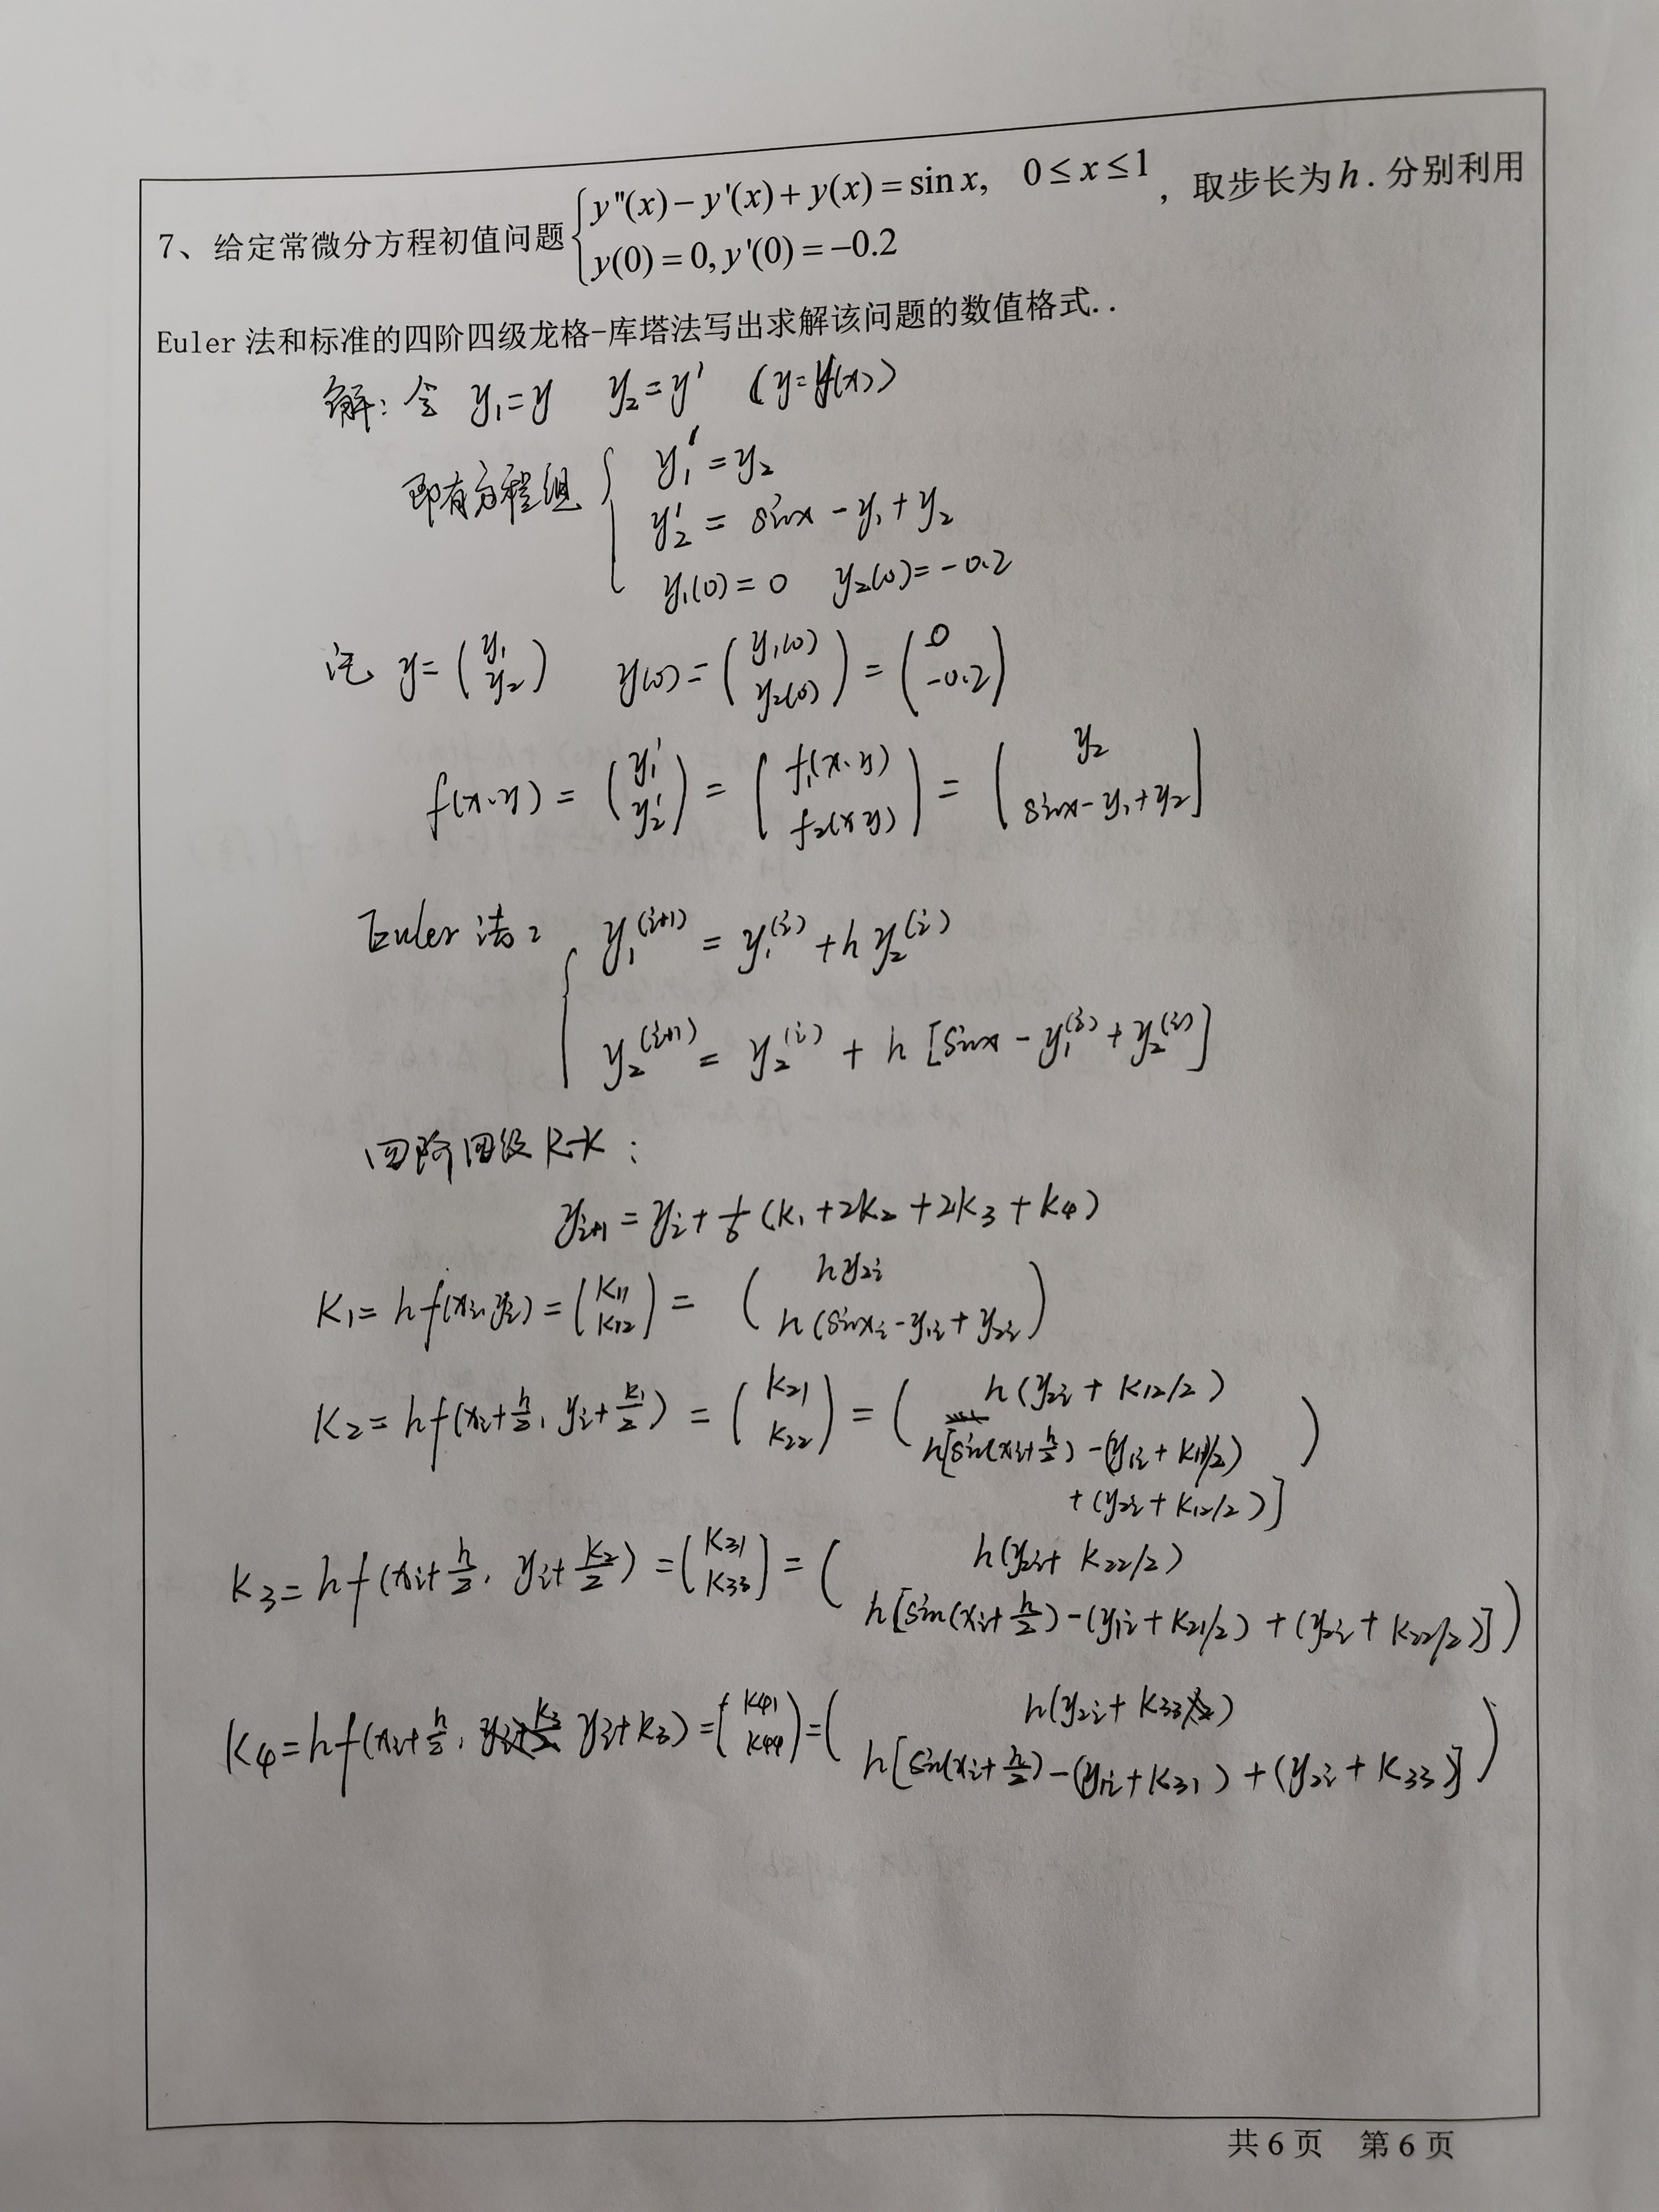 7、给定常微分方程初值问题 { y''(x) − y'(x) + y(x) = sin x, 0 ≤ x ≤ 1 , 取步长为 h . 分别利用
y(0) = 0, y'(0) = −0.2
Euler 法和标准的四阶四级龙格-库塔法写出求解该问题的数值格式. .
解: 令 y₁=y y₂=y' (y=y(x))
即有方程组 { y₁' = y₂
y₂' = sinx − y₁ + y₂
y₁(0) = 0 y₂(0) = −0.2
记 y = (y₁ y₂) y(0) = (y₁(0) y₂(0)) = (0 −0.2)
f(x,y) = (y₁' y₂') = (f₁(x,y) f₂(x,y)) = (y₂ sinx − y₁ + y₂)
Euler 法: { y₁^(i+1) = y₁^(i) + h y₂^(i)
y₂^(i+1) = y₂^(i) + h [sinx − y₁^(i) + y₂^(i)]
四阶四级 R-K :
y_{i+1} = y_i + 1/6 (K₁ + 2K₂ + 2K₃ + K₄)
K₁ = hf(x_i, y_i) = (K₁₁ K₁₂) = (hy_{2i} h(sinx_i − y_{1i} + y_{2i}))
K₂ = hf(x_i + h/2, y_i + K₁/2) = (K₂₁ K₂₂) = (h(y_{2i} + K₁₂/2)
h[sin(x_i + h/2) − (y_{1i} + K₁₁/2)
+ (y_{2i} + K₁₂/2)])
K₃ = hf(x_i + h/2, y_i + K₂/2) = (K₃₁ K₃₃) = (h(y_{2i} + K₂₂/2)
h[sin(x_i + h/2) − (y_{1i} + K₂₁/2) + (y_{2i} + K₂₂/2)])
K₄ = hf(x_i + h/2, y_i + K₃) = (K₄₁ K₄₄) = (h(y_{2i} + K₃₃)
h[sin(x_i + h/2) − (y_{1i} + K₃₁) + (y_{2i} + K₃₃)])
共 6 页 第 6 页